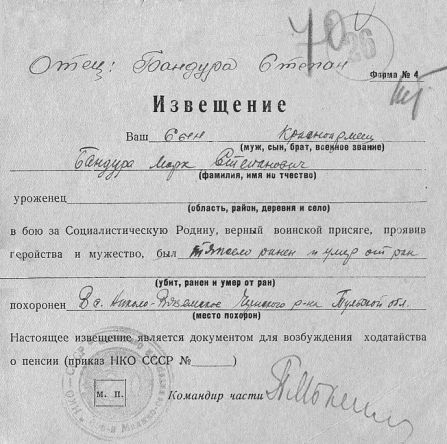 70
26
Отец: Бандура Степан
Форма № 4
Извещение
Ваш сын Красноармеец
(муж, сын, брат, военное звание)
Бандура Марк Степанович
(фамилия, имя но тчество)
уроженец
(область, район, деревня и село)
в бою за Социалистическую Родину, верный воинской присяге, проявив
геройства и мужество, был тяжело ранен и умер от ран
(убит, ранен и умер от ран)
похоронен В с. Николо-Вяземское Чернского р-на Тульской обл.
(место похорон)
Настоящее извещение является документом для возбуждения ходатайства
о пенсии (приказ НКО СССР №)
м. п.
Командир части